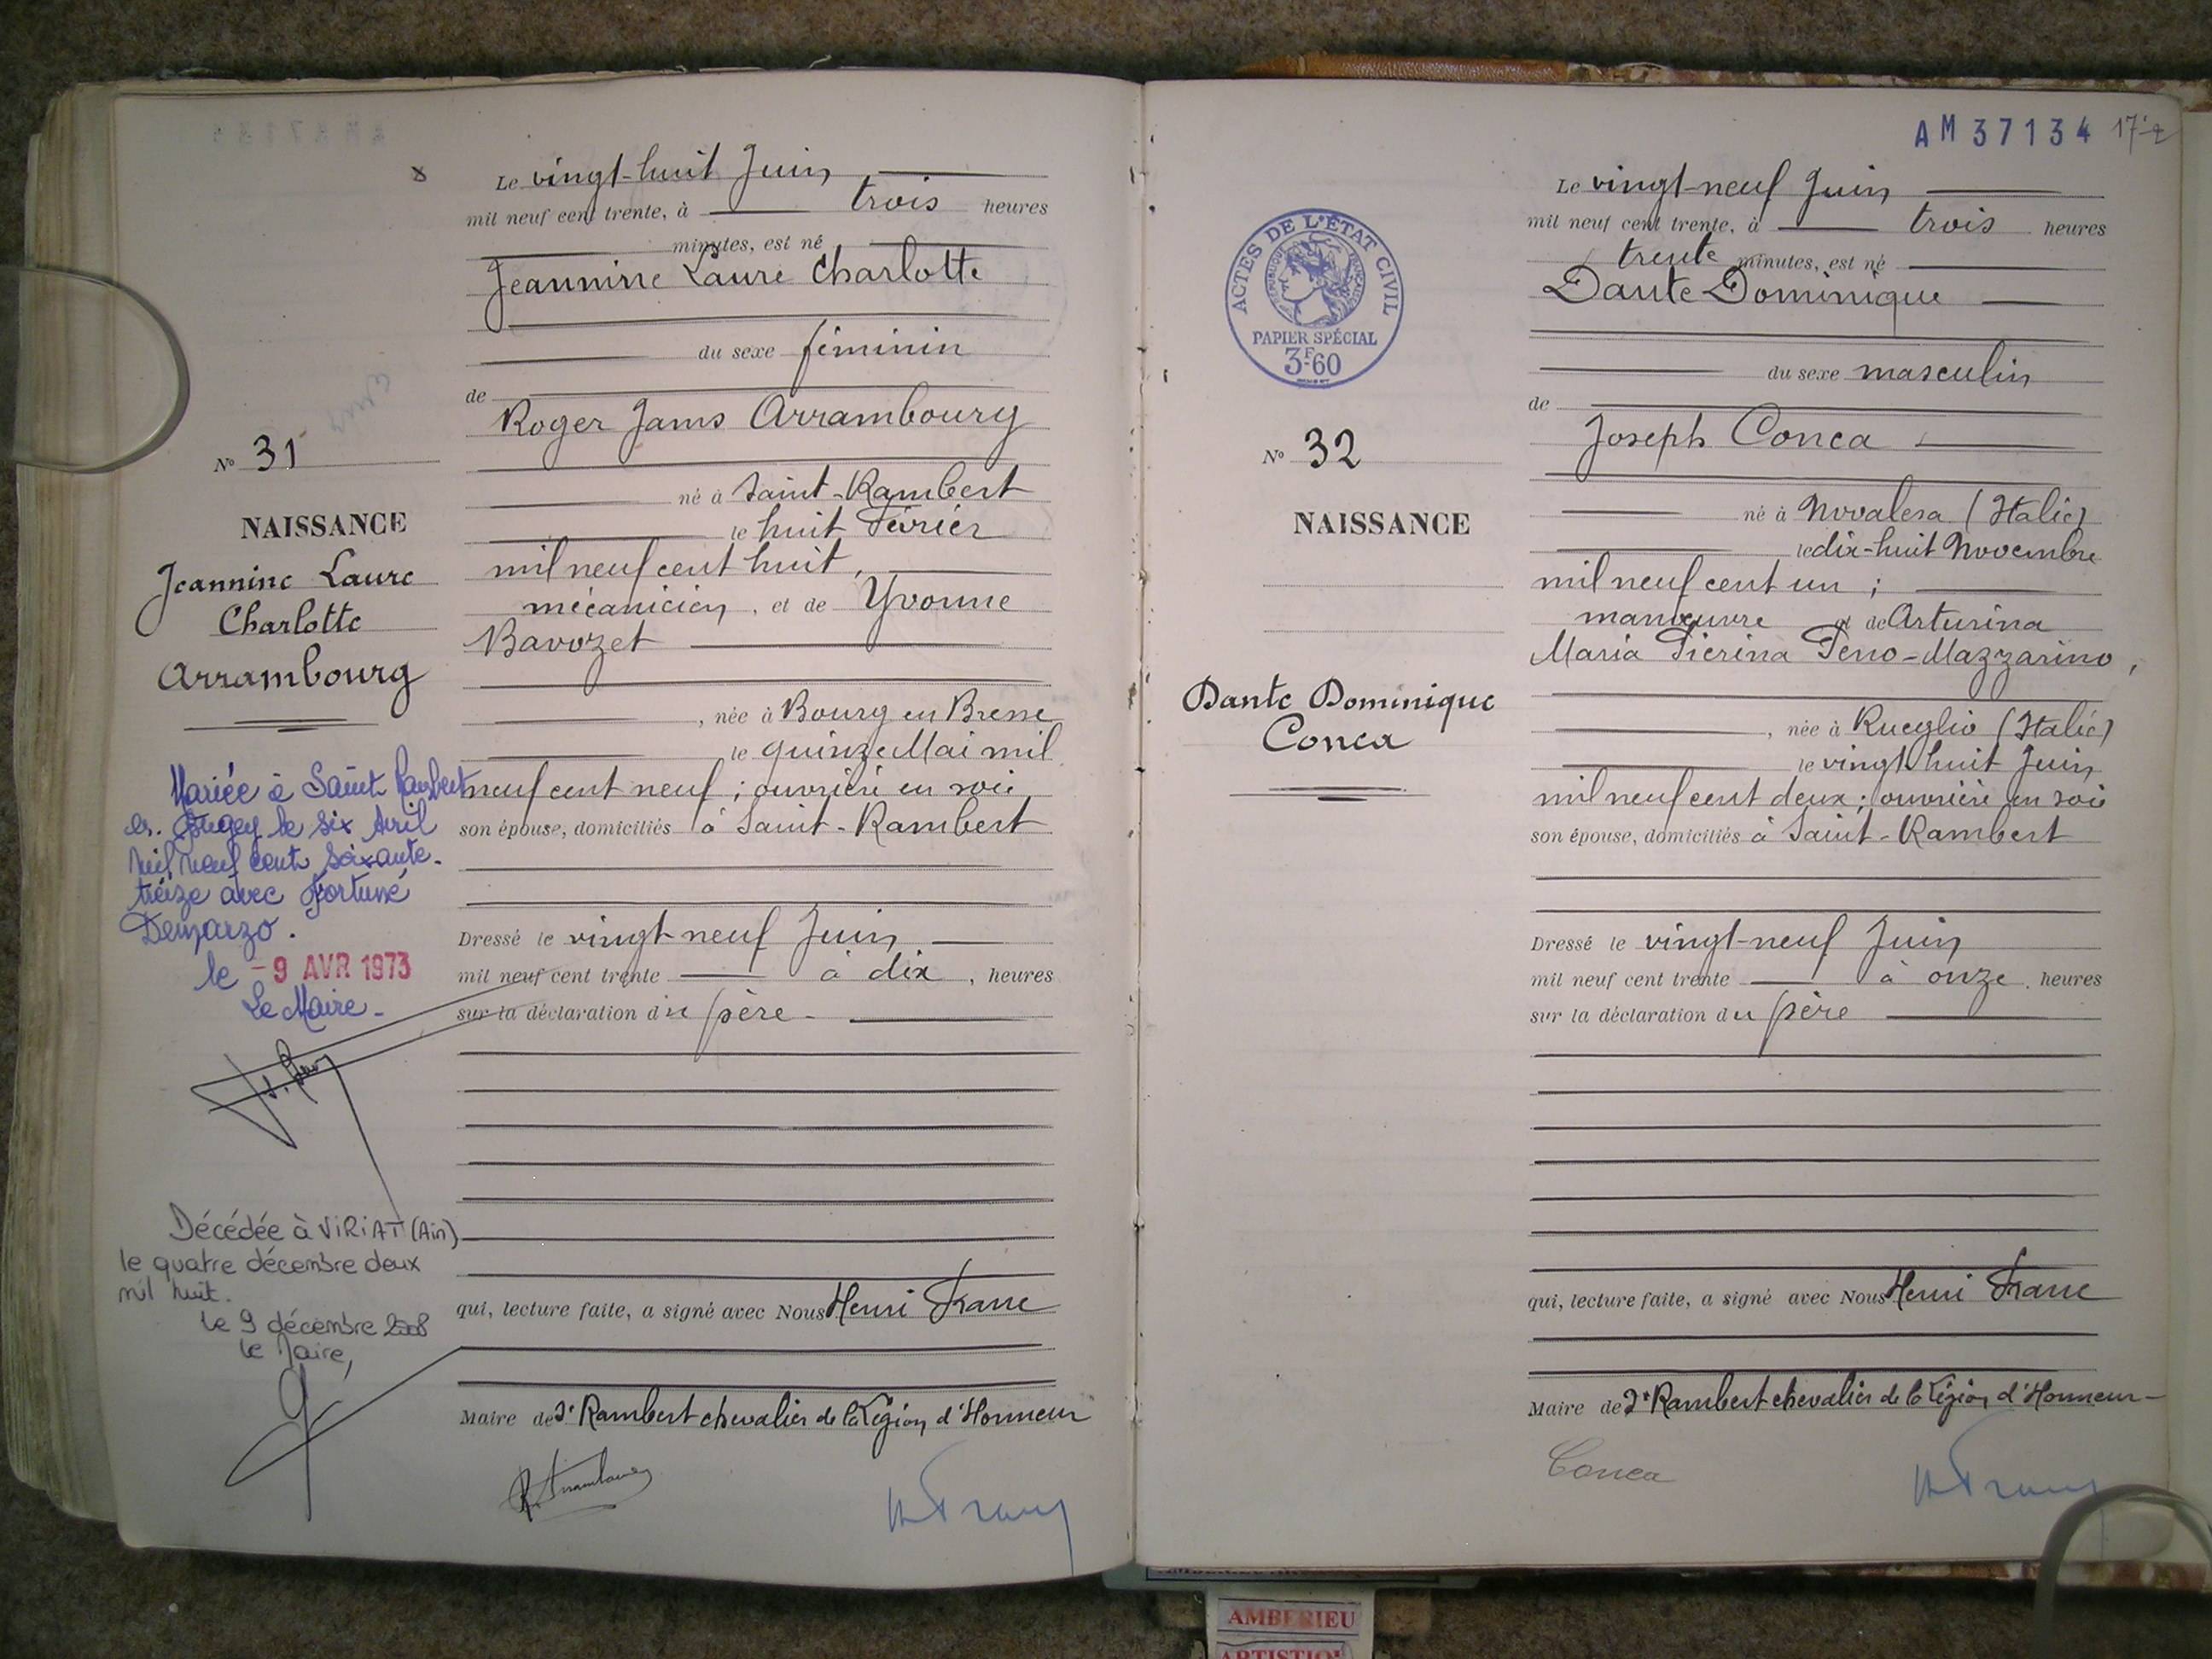 Le vingt-huit Juin
mil neuf cent trente, à trois heures
minutes, est né
Jeannine Laure Charlotte
du sexe féminin
de
Roger Jams Arrambourg
né à Saint-Rambert
le huit Février
mil neuf cent huit,
mécanicien, et de Yvonne
Bavozet
, née à Bourg en Bresse
le quinze Mai mil
neuf cent neuf ; ouvrière en soie
son épouse, domiciliés à Saint-Rambert
Dressé le vingt-neuf Juin
mil neuf cent trente à dix, heures
sur la déclaration du père
qui, lecture faite, a signé avec Nous Henri Franc
Maire de St Rambert chevalier de la Légion d'Honneur
N° 31
NAISSANCE
Jeannine Laure
Charlotte
Arrambourg
Mariée à Saint Rambert
en Bugey le six Avril
mil neuf cent soixante-
treize avec Fortuné
Demarzo.
le -9 AVR 1973
Le Maire -
Décédée à VIRIAT (Ain)
le quatre décembre deux
mil huit.
Le 9 décembre 2008
Le Maire,
AM 37134
ACTES DE L'ÉTAT CIVIL
RÉPUBLIQUE FRANÇAISE
PAPIER SPÉCIAL
3F60
N° 32
NAISSANCE
Dante Dominique
Conca
Le vingt-neuf Juin
mil neuf cent trente, à trois heures
trente minutes, est né
Dante Dominique
du sexe masculin
de
Joseph Conca
né à Novalesa (Italie)
le dix-huit Novembre
mil neuf cent un ;
manœuvre et de Arturina
Maria Pierina Peno-Mazzarino,
, née à Rueglio (Italie)
le vingt huit Juin
mil neuf cent deux ; ouvrière en soie
son épouse, domiciliés à Saint-Rambert
Dressé le vingt-neuf Juin
mil neuf cent trente à onze, heures
sur la déclaration du père
qui, lecture faite, a signé avec Nous Henri Franc
Maire de St Rambert chevalier de la Légion d'Honneur -
Conca
H Franc
AMBERIEU